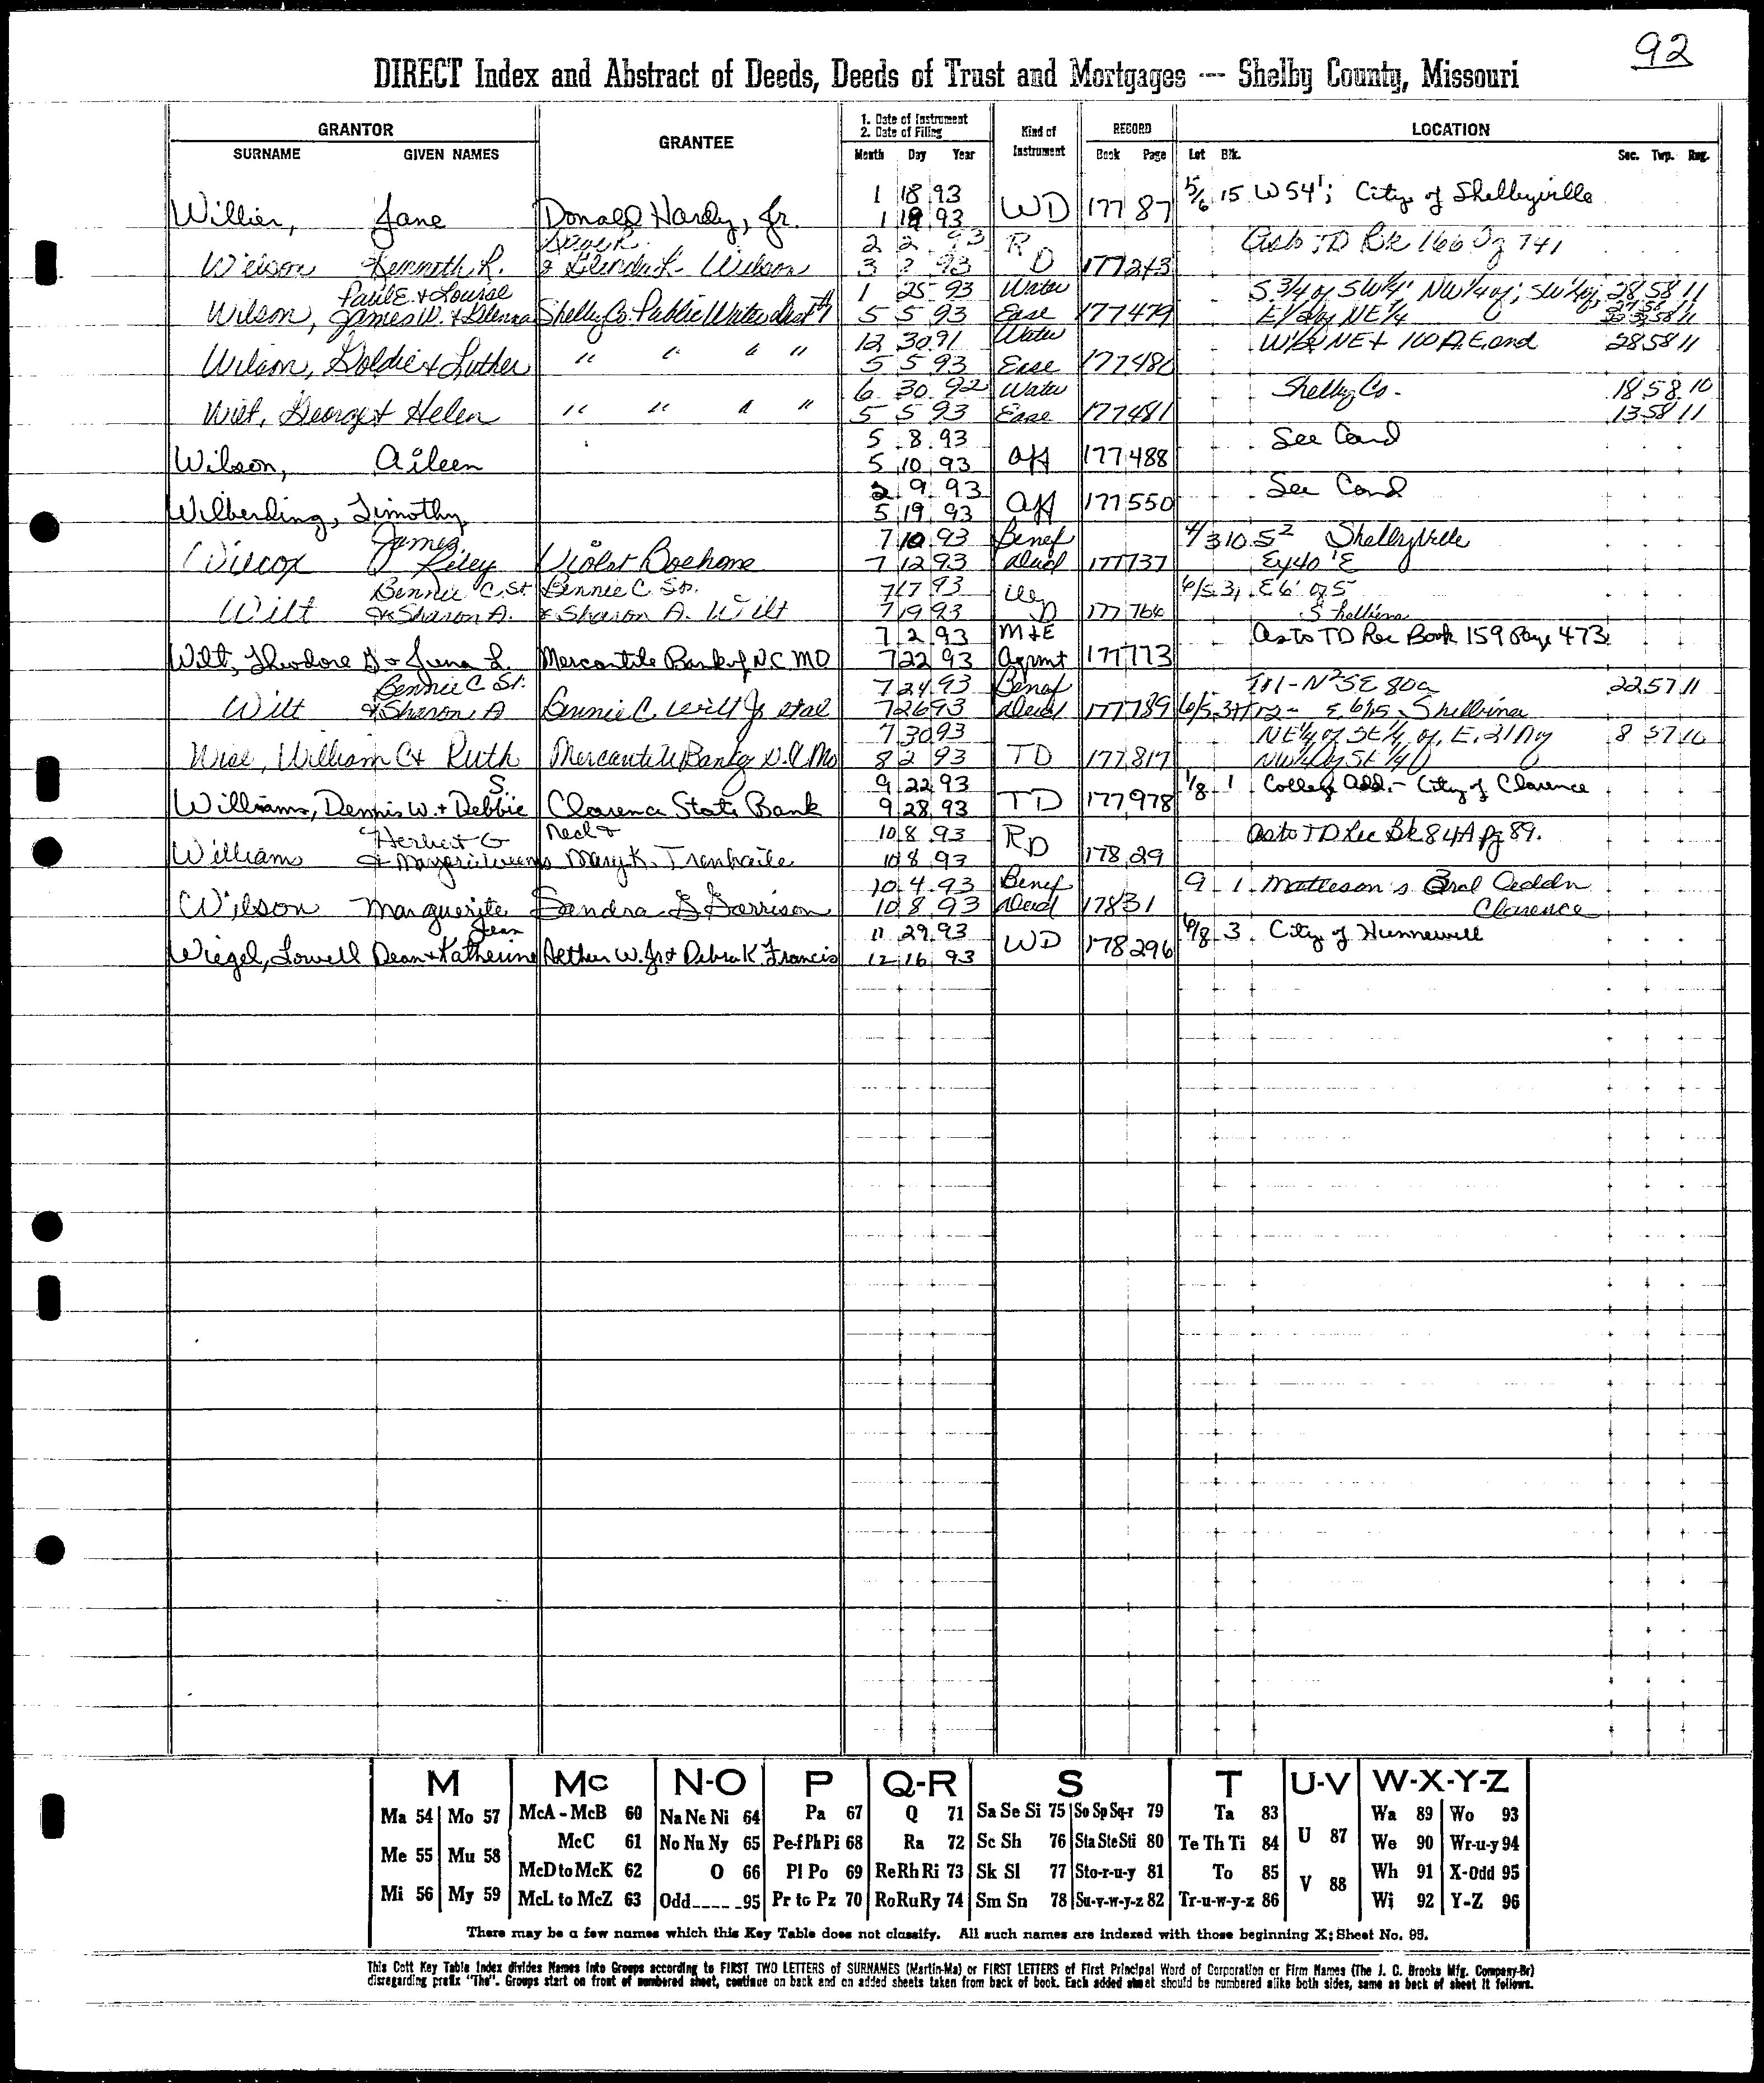 92
DIRECT Index and Abstract of Deeds, Deeds of Trust and Mortgages --- Shelby County, Missouri
GRANTOR GRANTEE 1. Date of Instrument 2. Date of Filing Kind of Instrument RECORD LOCATION
SURNAME GIVEN NAMES Month Day Year Book Page Lot Blk. Sec. Twp. Rng.
1 18 93 5/6 15 W 54'; City of Shelbyville
Willier, Jane Donald Hardy, Jr. 1 19 93 WD 177 87
2 2 93 R As to TD Bk 166 Pg 741
Wilson Kenneth R. & Glenda L. Wilson 3 2 93 D 177 243
Paul E. & Louise 1 25 93 Water S 3/4 of SW 1/4; NW 1/4 of; SW 1/4 of 28 58 11
Wilson, James W. & Glenna Shelby Co. Public Water Dist #1 5 5 93 Ease 177 479 E 1/2 of NE 1/4
12 30 91 Water W 1/2 NE + 100 A. E. and 28 58 11
Wilson, Goldie & Luther " " " " 5 5 93 Ease 177 480
6 30 92 Water Shelby Co. 18 58 10
Wilt, George & Helen " " " " 5 5 93 Ease 177 481 13 58 11
5 8 93 See Card
Wilson, Aileen 5 10 93 Aff 177 488
2 9 93 See Card
Wilberding, Timothy 5 19 93 Aff 177 550
James 7 10 93 Benef 4/3 10 S2 Shelbyville
Wilcox Riley Violet Boehone 7 12 93 Deed 177 737 Ex 40' E
Bennie C. Sr Bennie C. Sr. 7 17 93 6/5 31 E 6' of 5
Wilt & Sharon A. & Sharon A. Wilt 7 19 93 D 177 766 Shelbina
7 2 93 M+E As to TD Rec Book 159 Page 473
Wilt, Theodore D & June L. Mercantile Bank of NC MO 7 22 93 Agrmt 177 773
Bennie C. Sr. 7 24 93 Benef N2 SE 80a 22 57 11
Wilt & Sharon A Bennie C. Wilt Jr etal 7 26 93 Deed 177 789 6/5 Shelbina
7 30 93 NE 1/4 of SE 1/4 of, E. 21 A of 8 57 10
Wise, William C & Ruth Mercantile Bank of N.C Mo 8 2 93 TD 177 817 NW 1/4 of SE 1/4
S. 9 22 93 1/8 1 College Add. - City of Clarence
Williams, Dennis W. & Debbie Clarence State Bank 9 28 93 TD 177 978
Herbert G Neal & 10 8 93 R As to TD Rec Bk 84A pg 89.
William & Mary K. Trenhaile 10 8 93 D 178 29
10 4 93 Benef 9 1 Matteson's Addn
Wilson Marguerite Sandra G Garrison 10 8 93 Deed 178 31 Clarence
Jean 11 29 93 6/8 3 City of Hunnewell
Wiegel, Lowell Dean & Katherine Arthur W. Jr & Debra K. Francis 12 16 93 WD 178 296
M Mc N-O P Q-R S T U-V W-X-Y-Z
Ma 54 Mo 57 McA - McB 60 Na Ne Ni 64 Pa 67 Q 71 Sa Se Si 75 So Sp Sq-r 79 Ta 83 U 87 Wa 89 Wo 93
Me 55 Mu 58 McC 61 No Nu Ny 65 Pe-f Ph Pi 68 Ra 72 Sc Sh 76 Sta Ste Sti 80 Te Th Ti 84 V 88 We 90 Wr-u-y 94
McD to McK 62 O 66 Pl Po 69 Re Rh Ri 73 Sk Sl 77 Sto-r-u-y 81 To 85 Wh 91 X-Odd 95
Mi 56 My 59 McL to McZ 63 Odd----- 95 Pr to Pz 70 Ro Ru Ry 74 Sm Sn 78 Su-v-w-y-z 82 Tr-u-w-y-z 86 Wi 92 Y-Z 96
There may be a few names which this Key Table does not classify. All such names are indexed with those beginning X; Sheet No. 95.
This Cott Key Table Index divides Names into Groups according to FIRST TWO LETTERS of SURNAMES (Martin-Ma) or FIRST LETTERS of First Principal Word of Corporation or Firm Names (The J. C. Brooks Mfg. Company-Br)
disregarding prefix "The". Groups start on front of numbered sheet, continue on back and on added sheets taken from back of book. Each added sheet should be numbered alike both sides, same as back of sheet it follows.